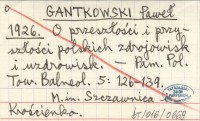 GANTKOWSKI Paweł
1926. O przeszłości i przy-
szłości polskich zdrojowisk
i uzdrowisk. — Pam. Pol.
Tow. Balneol. 5: 126-139.
M.in. Szczawnica
Krościenko.
bt/016/0669